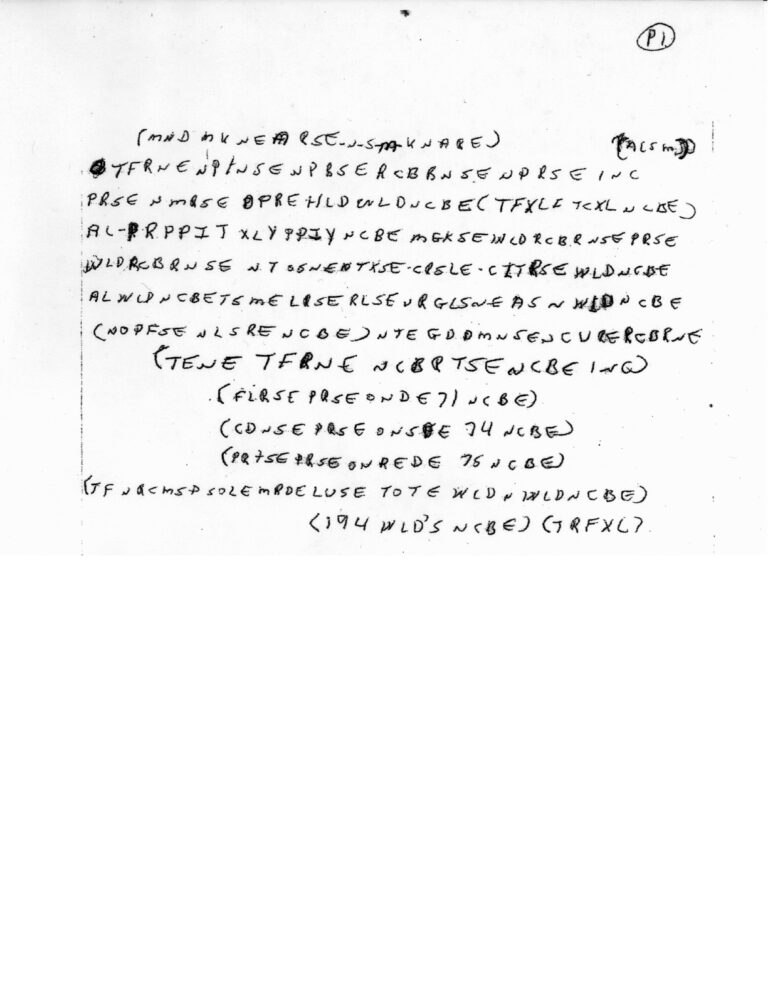 P1
(MND MKNEARSE-N-S-M-KNARE) (ACSM)
TFRNENPINSENPBSERCBBNSENPRSEINC
PRSENMRSEOPREHLDWLDNCBE(TFXLFTCXLNCBE)
AL-PRPPIT XLYPPIYNCBE MGKSEWLDRCBRNSEPRSE
WLDRCBRNSE NTOSNENTXSE-CRSLE-CITRSEWLDNCBE
ALWLDNCBETSMELRSERLSEURGLSNEASNWLDNCBE
(NOPFSENLSRENCBE)NTEGDDMNSENCURERCBRNE
(TENETFRNENCBRTSENCBEING)
(FLRSEPRSEONDE71NCBE)
(CDNSEPRSEONSDE74NCBE)
(PRTSEPRSEONREDE75NCBE)
(TFNRCMSPSOLEMRDELUSETOTEWLDNWLDNCBE)
(194WLD'SNCBE)(TRFXL)